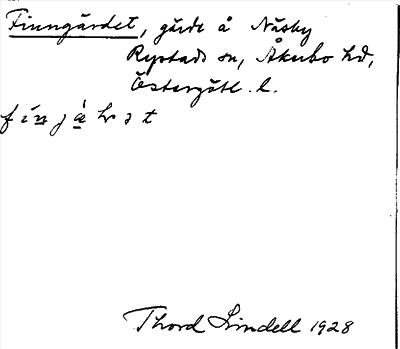 Finngärdet, gärde å Näsby
Rystads sn, Åkerbo hd,
Östergötl. l.
Thord Lindell 1928